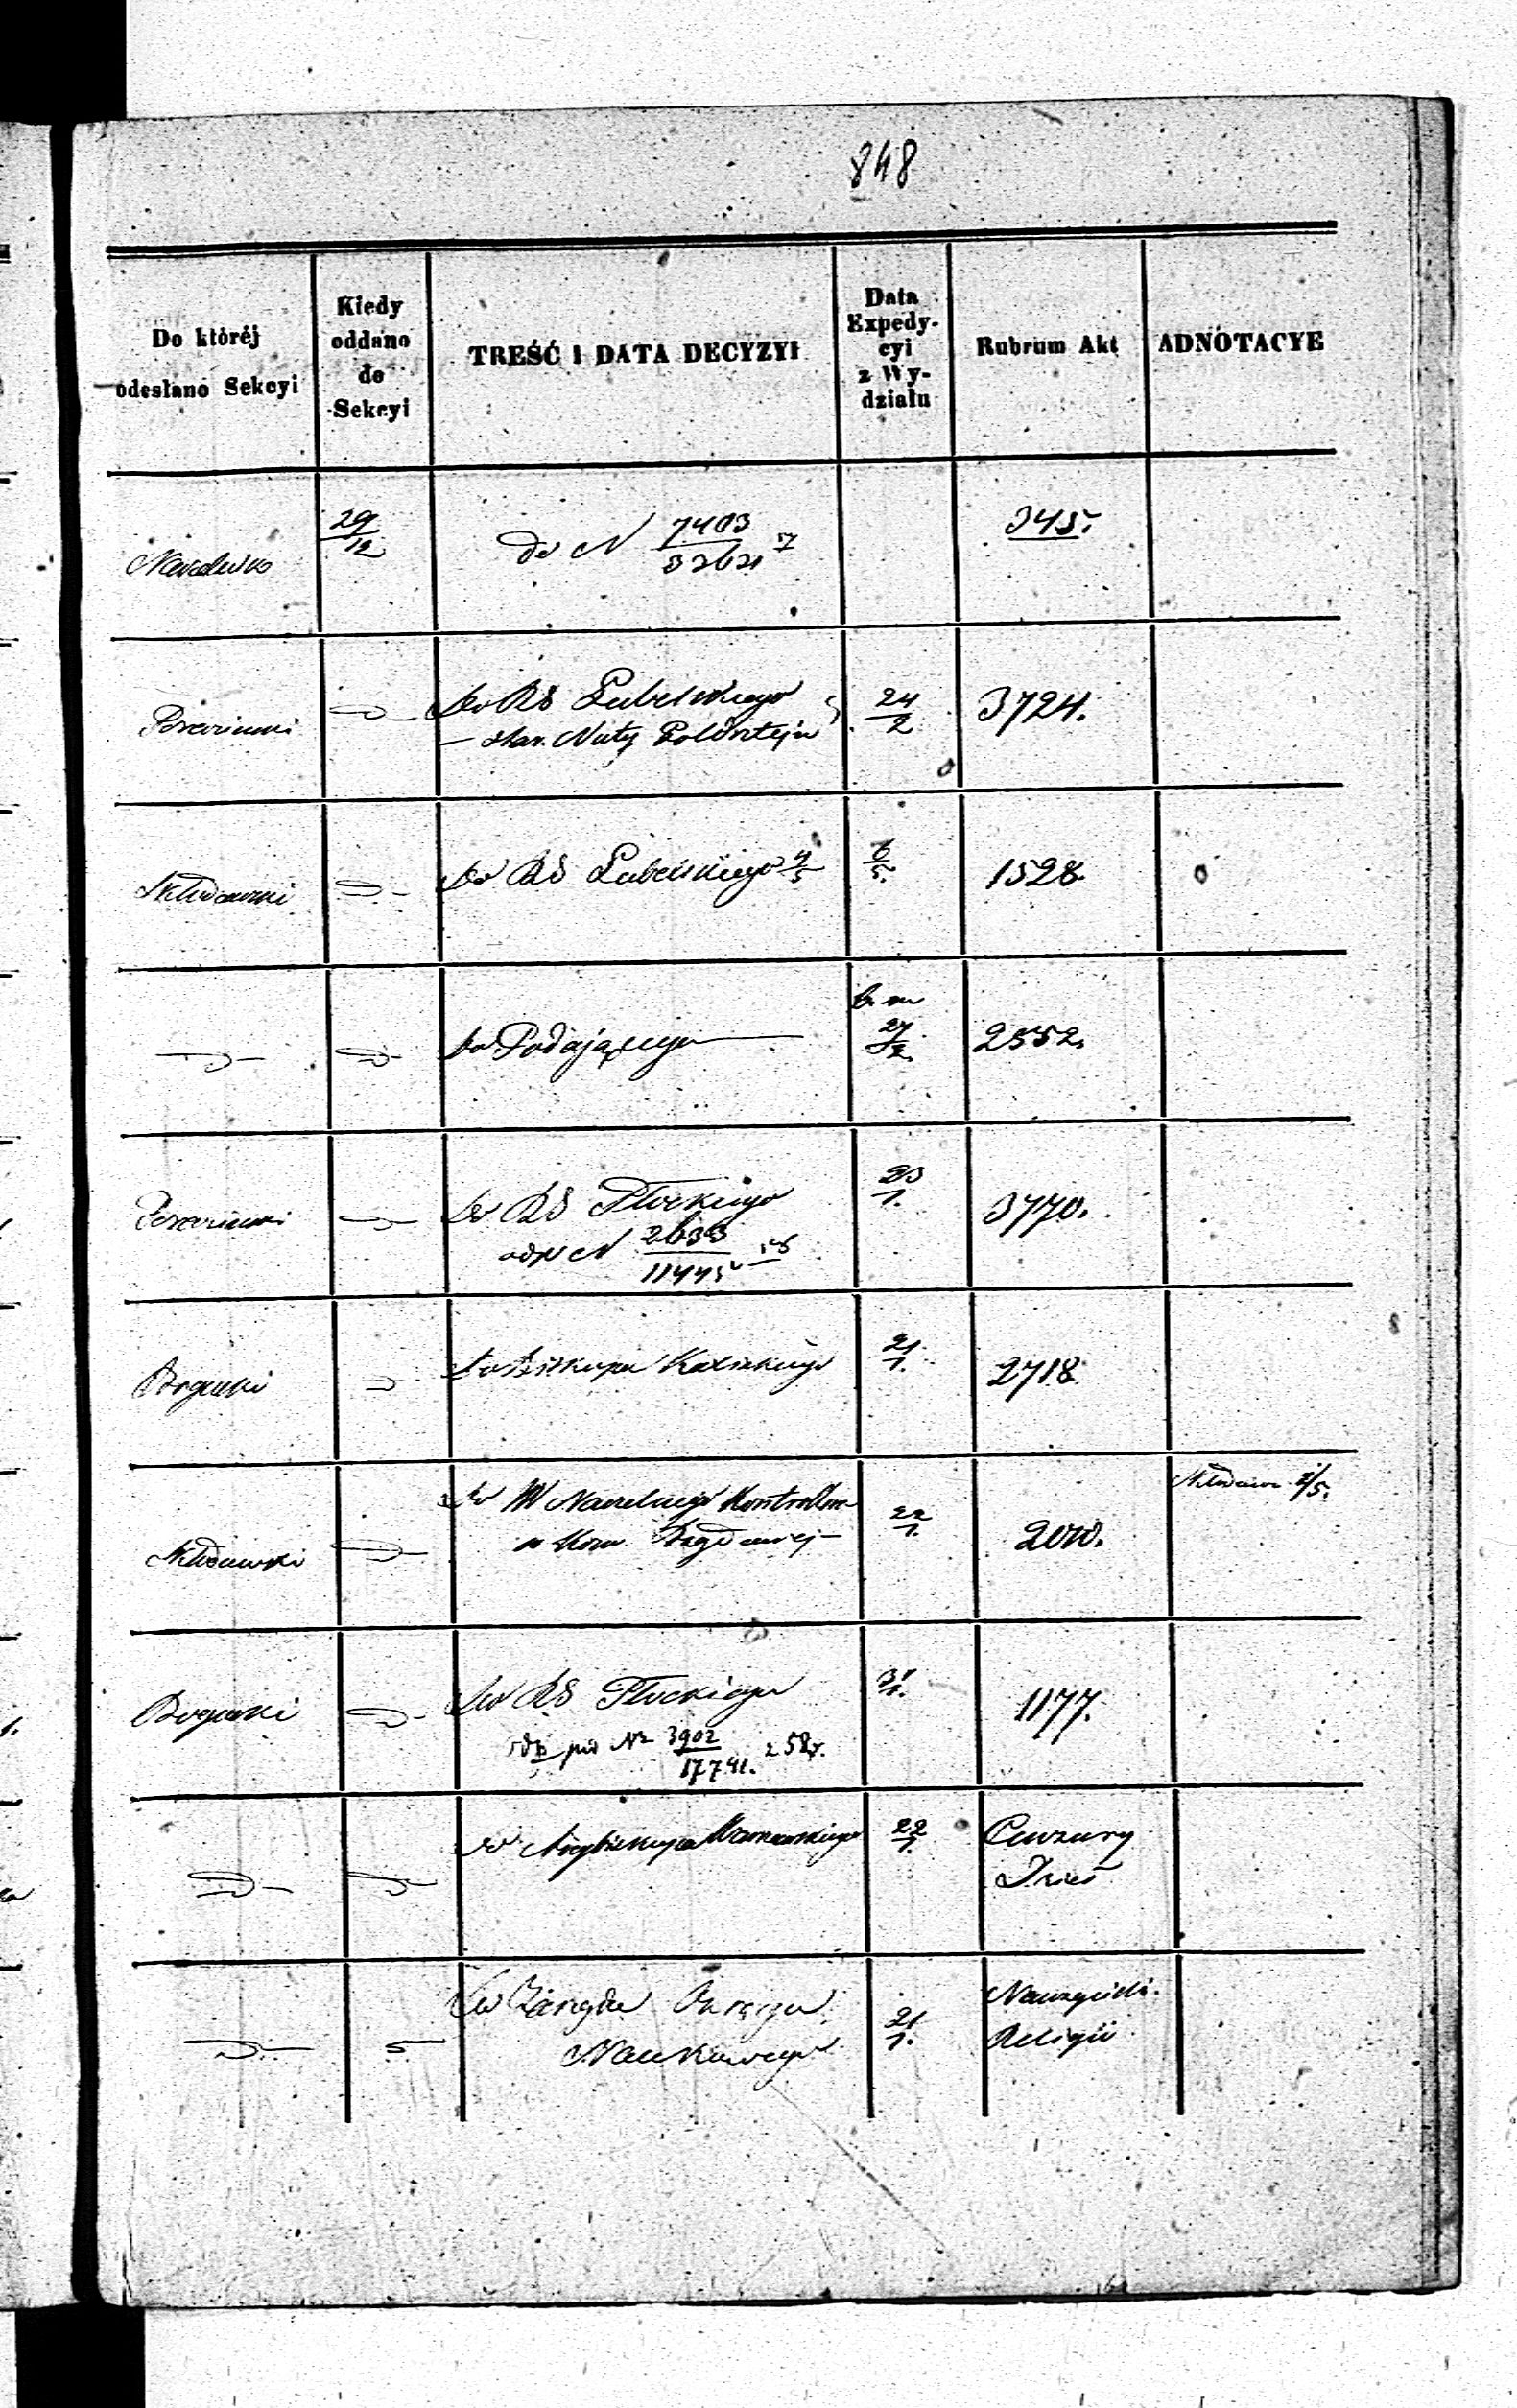 848
Do któréj
odesłano Sekcyi
Kiedy
oddano
do
Sekcyi
TREŚĆ I DATA DECYZYI
Data
Expedy-
cyi
z Wy-
działu
Rubrum Akt
ADNOTACYE
29/12
do N 7403/32621 57
345.
—D—
Do RS Lubelskiego
— skar. Nuty Goldsztejn
24/2
3724.
Kłodawski
—D—
Do RS Lubelskiego 4/5
6/5.
1528.
—D—
—D—
Do Podającego
b. m
27/2.
2552.
—D—
Do RS Płockiego
odp N 2633/11445 58
23/1.
3770.
Bogucki
—D—
Do Biskupa Kaliskiego
21/1.
2718
Kłodawski
—D—
Do W Naczelnego Kontrollera
w Kom. Rządowej
22/1.
2010.
Kłodawa 7/5.
Bogucki
—D—
Do RS Płockiego
odp pod No 3902/17741. z 58r.
31/1.
1177.
—D—
—D—
Do Arcybiskupa Warszawskiego
22/1.
Cenzury
Dzieł
—D—
Do Zarządu Okręgu
Naukowego
21/1.
Nauczycieli.
Religii